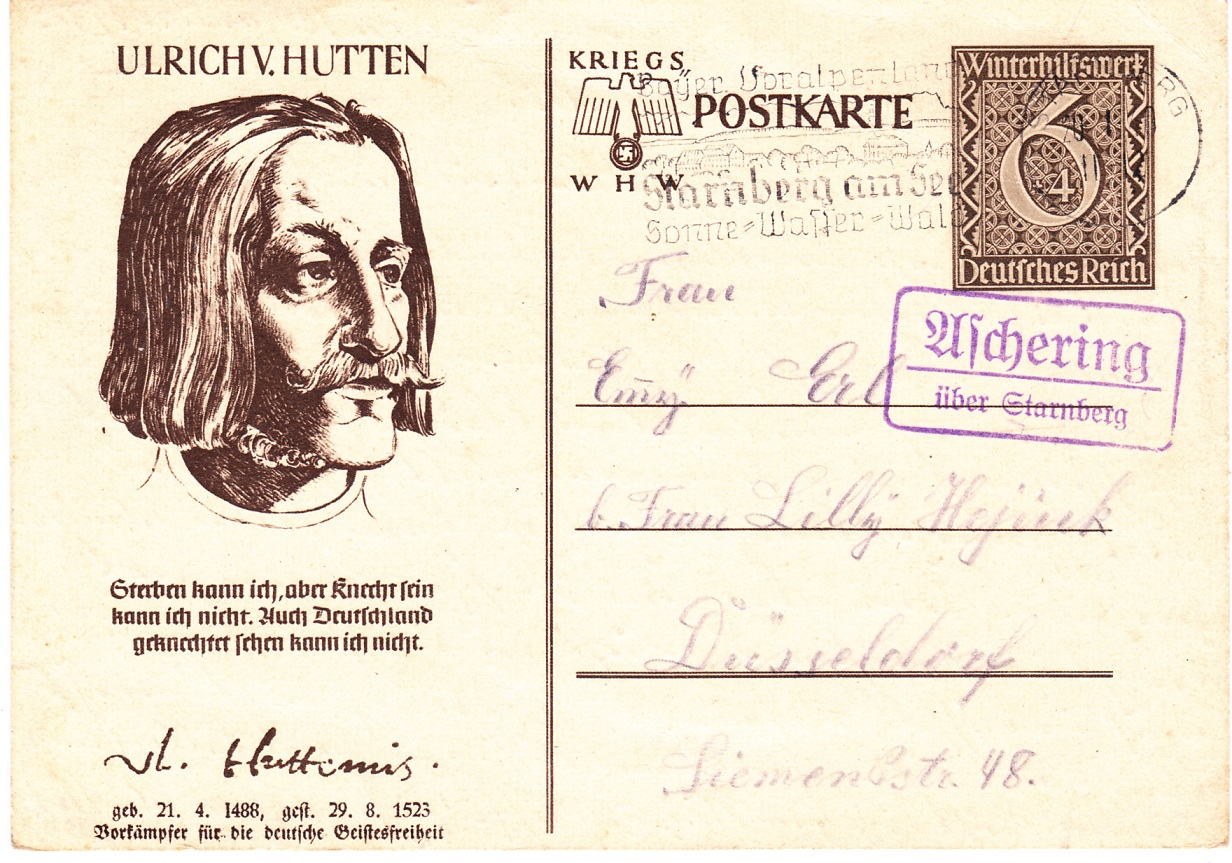 ULRICH V. HUTTEN
Sterben kann ich, aber Knecht sein
kann ich nicht. Auch Deutschland
geknechtet sehen kann ich nicht.
geb. 21. 4. 1488, gest. 29. 8. 1523
Vorkämpfer für die deutsche Geistesfreiheit
KRIEGS
W H W
POSTKARTE
Bayer. Voralpenland
Starnberg am See
Sonne=Wasser=Wald
Winterhilfswerk
6
+4
Deutsches Reich
Aschering
über Starnberg
Frau
Emy Erl
b. Frau Lilly
Düsseldorf
Siemensstr. 48.